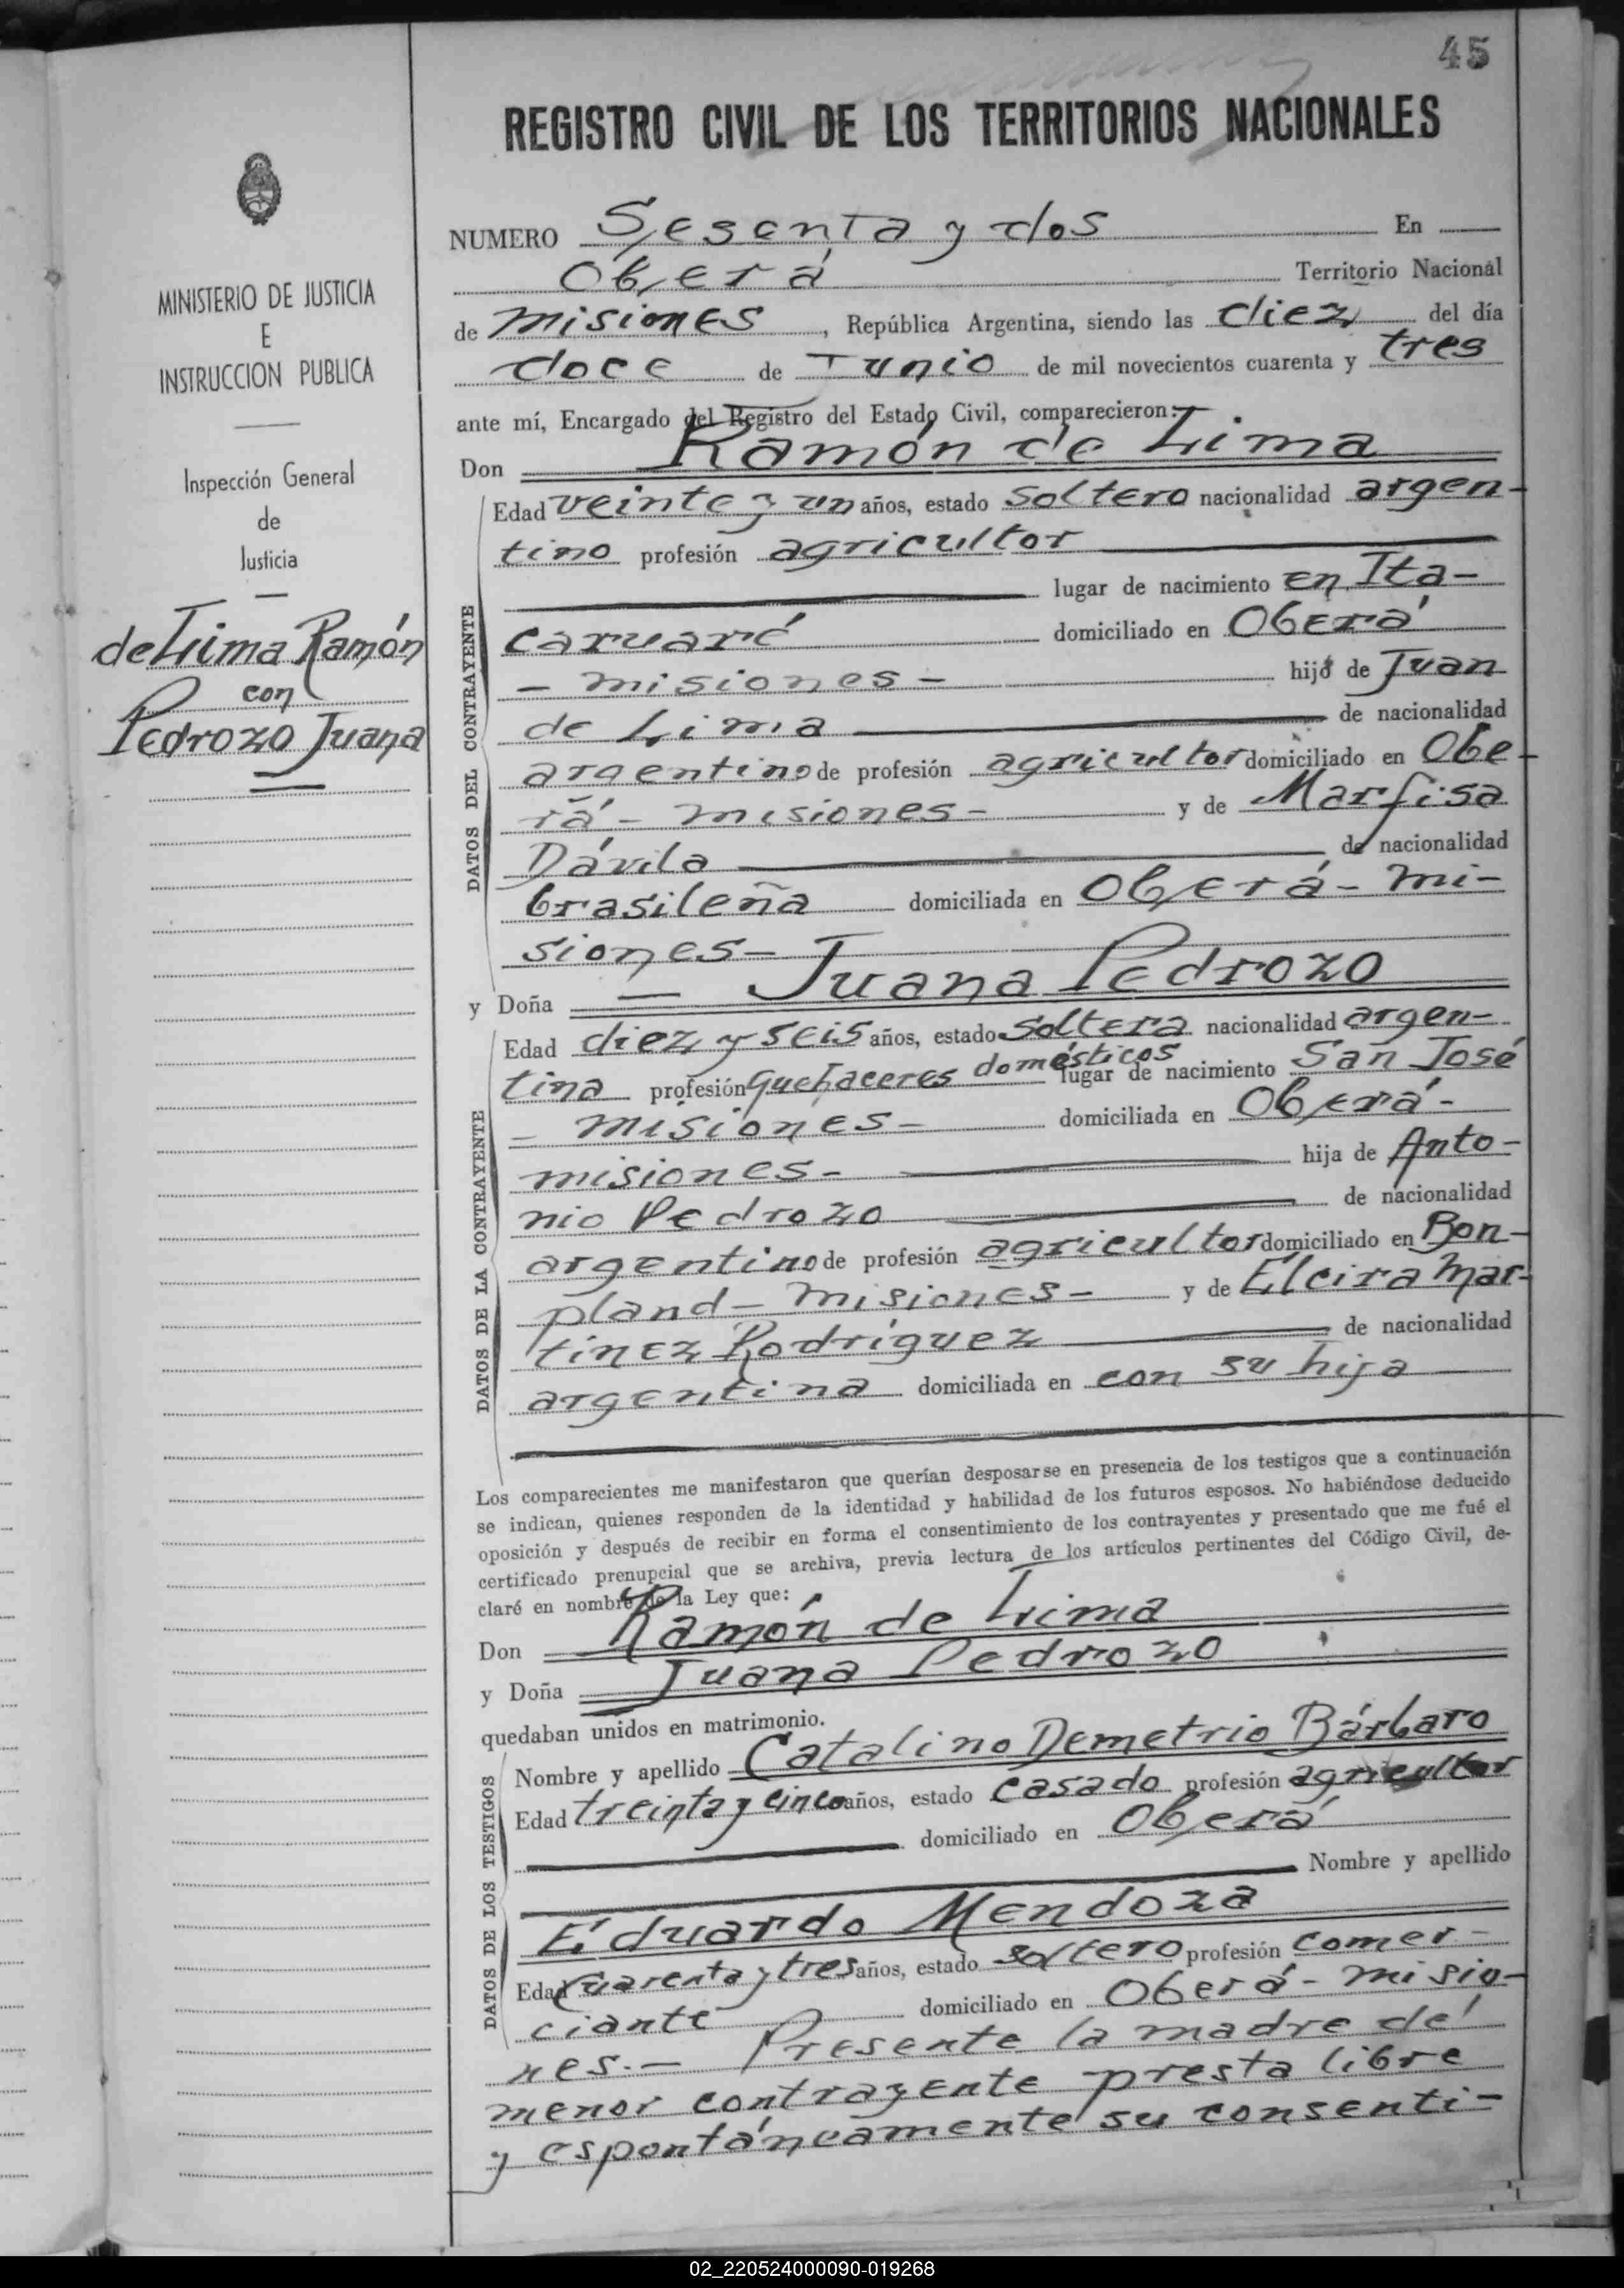 45
REGISTRO CIVIL DE LOS TERRITORIOS NACIONALES
MINISTERIO DE JUSTICIA
E
INSTRUCCION PUBLICA
Inspección General
de
Justicia
de Lima Ramón
con
Pedrozo Juana
NUMERO Sesenta y dos En
Oberá Territorio Nacional
de misiones, República Argentina, siendo las diez del día
doce de Junio de mil novecientos cuarenta y tres
ante mí, Encargado del Registro del Estado Civil, comparecieron:
Don Ramón de Lima
DATOS DEL CONTRAYENTE
Edad veinte y un años, estado soltero nacionalidad argen-
tino profesión agricultor
lugar de nacimiento en Ita-
caruaré domiciliado en Oberá
- misiones - hijo de Juan
de Lima de nacionalidad
argentino de profesión agricultor domiciliado en Obe-
rá - misiones - y de Marfisa
Dávila de nacionalidad
brasileña domiciliada en Oberá - mi-
siones -
y Doña — Juana Pedrozo
DATOS DE LA CONTRAYENTE
Edad diez y seis años, estado soltera nacionalidad argen-
tina profesión quehaceres domésticos lugar de nacimiento San José
- misiones - domiciliada en Oberá -
misiones - hija de Anto-
nio Pedrozo de nacionalidad
argentino de profesión agricultor domiciliado en Bon-
pland - misiones - y de Elcira Mar-
tinez Rodríguez de nacionalidad
argentina domiciliada en con su hija
Los comparecientes me manifestaron que querían desposarse en presencia de los testigos que a continuación
se indican, quienes responden de la identidad y habilidad de los futuros esposos. No habiéndose deducido
oposición y después de recibir en forma el consentimiento de los contrayentes y presentado que me fué el
certificado prenupcial que se archiva, previa lectura de los artículos pertinentes del Código Civil, de-
claré en nombre de la Ley que:
Don Ramón de Lima
y Doña Juana Pedrozo
quedaban unidos en matrimonio.
DATOS DE LOS TESTIGOS
Nombre y apellido Catalino Demetrio Bárbaro
Edad treinta y cinco años, estado casado profesión agricultor
domiciliado en Oberá
Nombre y apellido
Eduardo Mendoza
Edad cuarenta y tres años, estado soltero profesión comer-
ciante domiciliado en Oberá - misio-
nes.- Presente la madre del
menor contrayente presta libre
y espontáneamente su consenti-
02_220524000090-019268